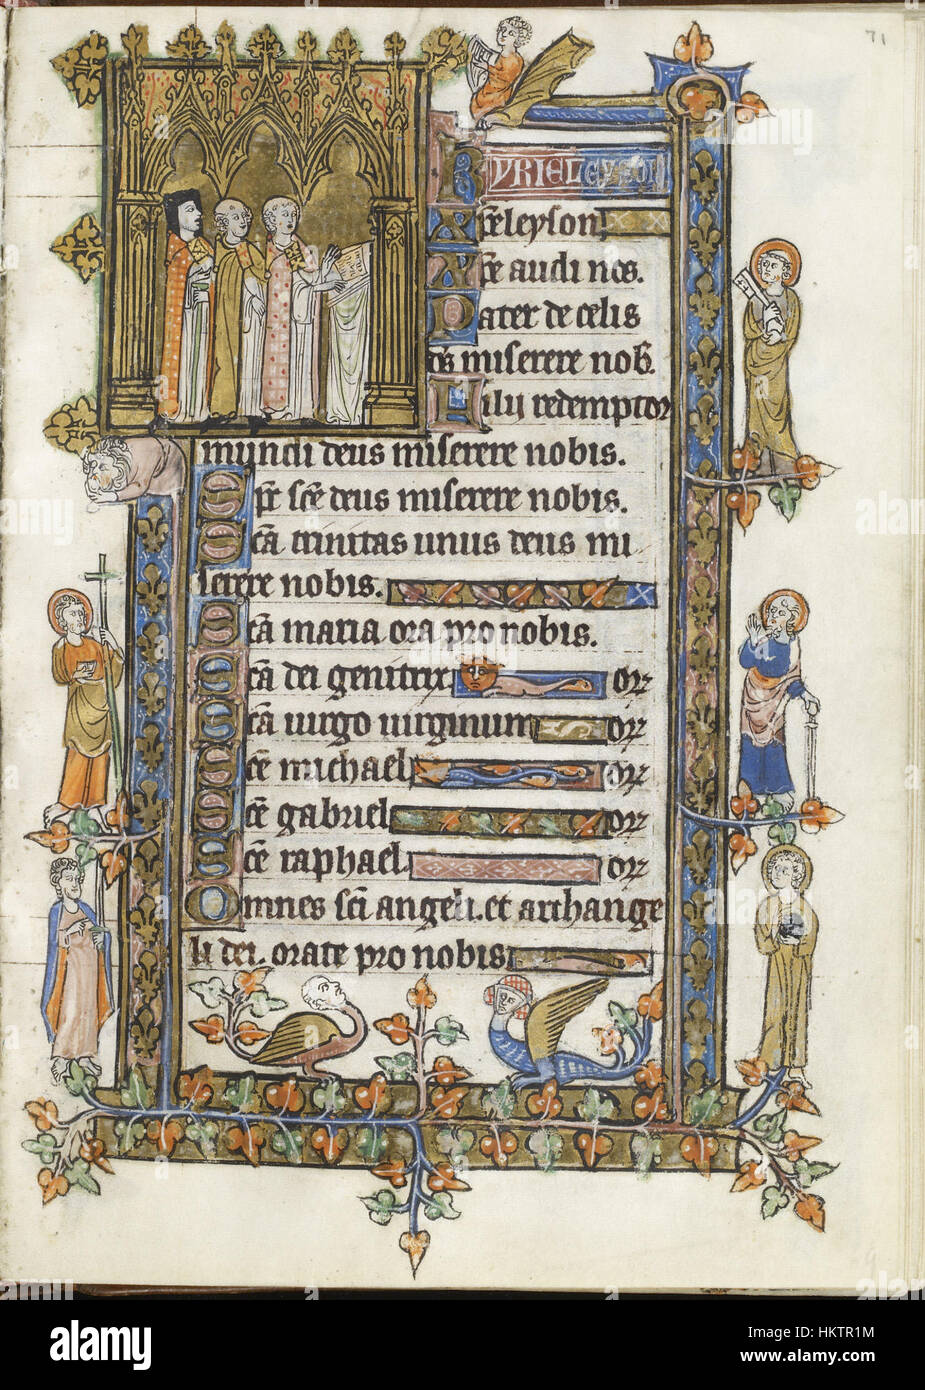 71
KYRIEL eyson
Xpeleyson
Xpe audi nos.
Pater de celis
ds miserere nob.
Filii redemptor
mundi deus miserere nobis.
Spc sce deus miserere nobis.
Sca trinitas unus deus mi
serere nobis.
Sca maria ora pro nobis.
Sca dei genitrix or
Sca uirgo uirginum or
Sce michael or
Sce gabriel or
Sce raphael or
Omnes sci angeli. et archange
li dei. orate pro nobis
alamy
Image ID: HKTR1M
www.alamy.com